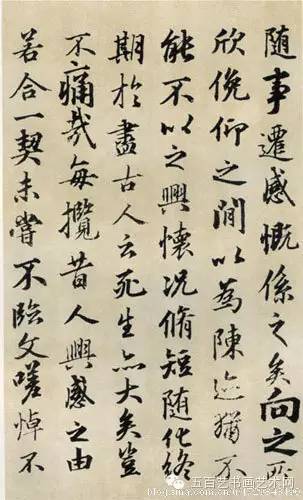 随事遷感慨係之矣向之所
欣俛仰之間以為陳迹猶不
能不以之興懷况脩短随化終
期於盡古人云死生亦大矣豈
不痛哉每攬昔人興感之由
若合一契未嘗不臨文嗟悼不
五百艺书画艺术网